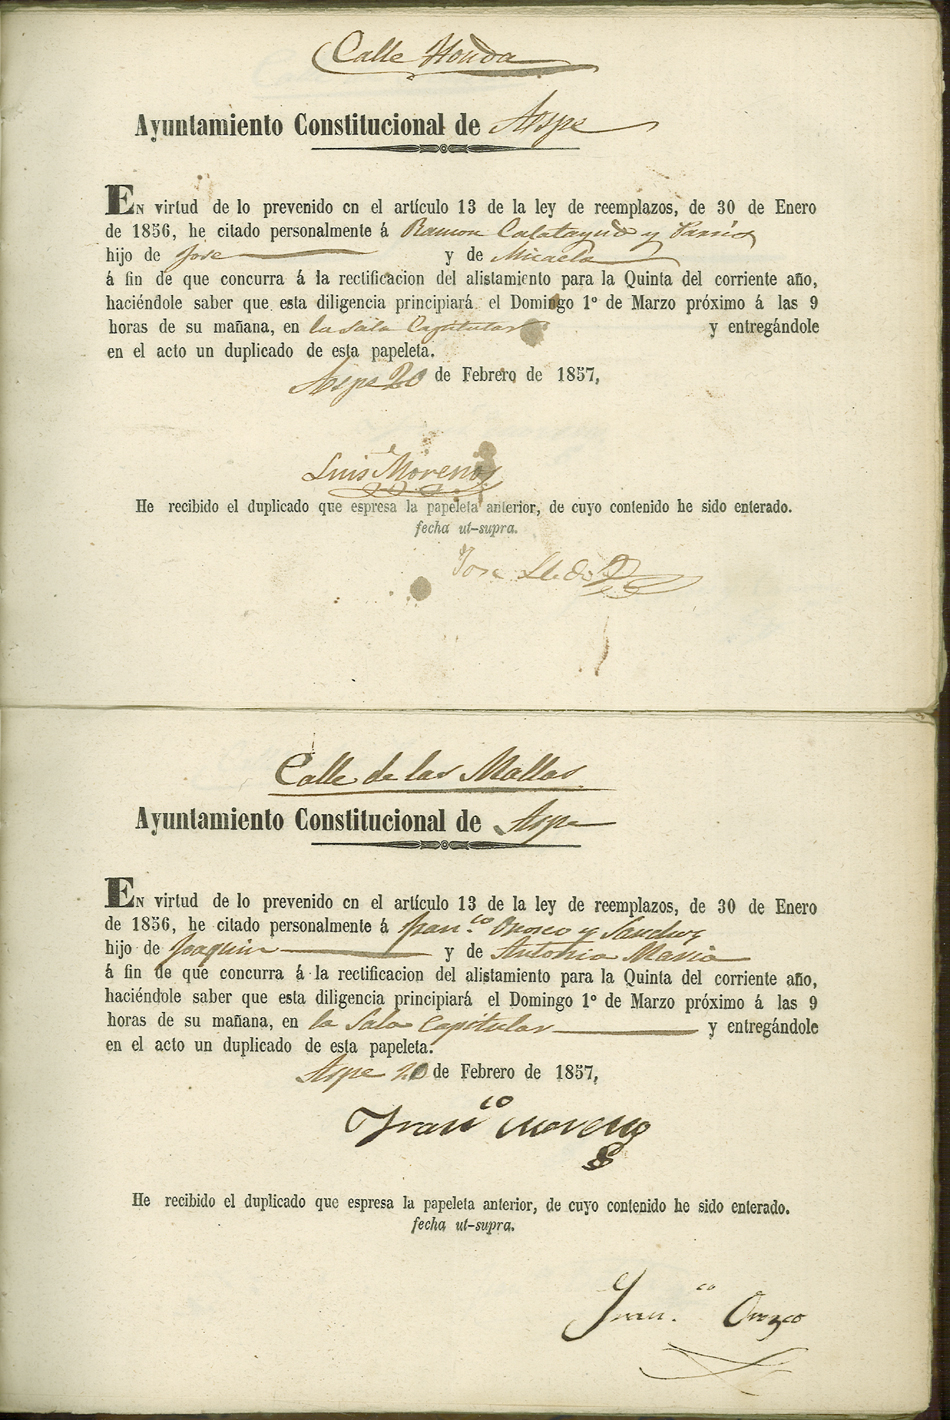 Calle Honda
Ayuntamiento Constitucional de Aspe
En virtud de lo prevenido en el artículo 13 de la ley de reemplazos, de 30 de Enero
de 1856, he citado personalmente á Ramon Calatayud y
hijo de Jose y de Micaela
á fin de que concurra á la rectificacion del alistamiento para la Quinta del corriente año,
haciéndole saber que esta diligencia principiará el Domingo 1º de Marzo próximo á las 9
horas de su mañana, en la Sala Capitular y entregándole
en el acto un duplicado de esta papeleta.
Aspe 20 de Febrero de 1857,
Luis Moreno
He recibido el duplicado que espresa la papeleta anterior, de cuyo contenido he sido enterado.
fecha ut-supra.
Jose
Calle de las Mallas
Ayuntamiento Constitucional de Aspe
En virtud de lo prevenido en el artículo 13 de la ley de reemplazos, de 30 de Enero
de 1856, he citado personalmente á Fran.co Orosco y Sanchez
hijo de Joaquin y de Antonia Maria
á fin de que concurra á la rectificacion del alistamiento para la Quinta del corriente año,
haciéndole saber que esta diligencia principiará el Domingo 1º de Marzo próximo á las 9
horas de su mañana, en la Sala Capitular y entregándole
en el acto un duplicado de esta papeleta.
Aspe 20 de Febrero de 1857,
Franco Moreno
He recibido el duplicado que espresa la papeleta anterior, de cuyo contenido he sido enterado.
fecha ut-supra.
Fran.co Orozco